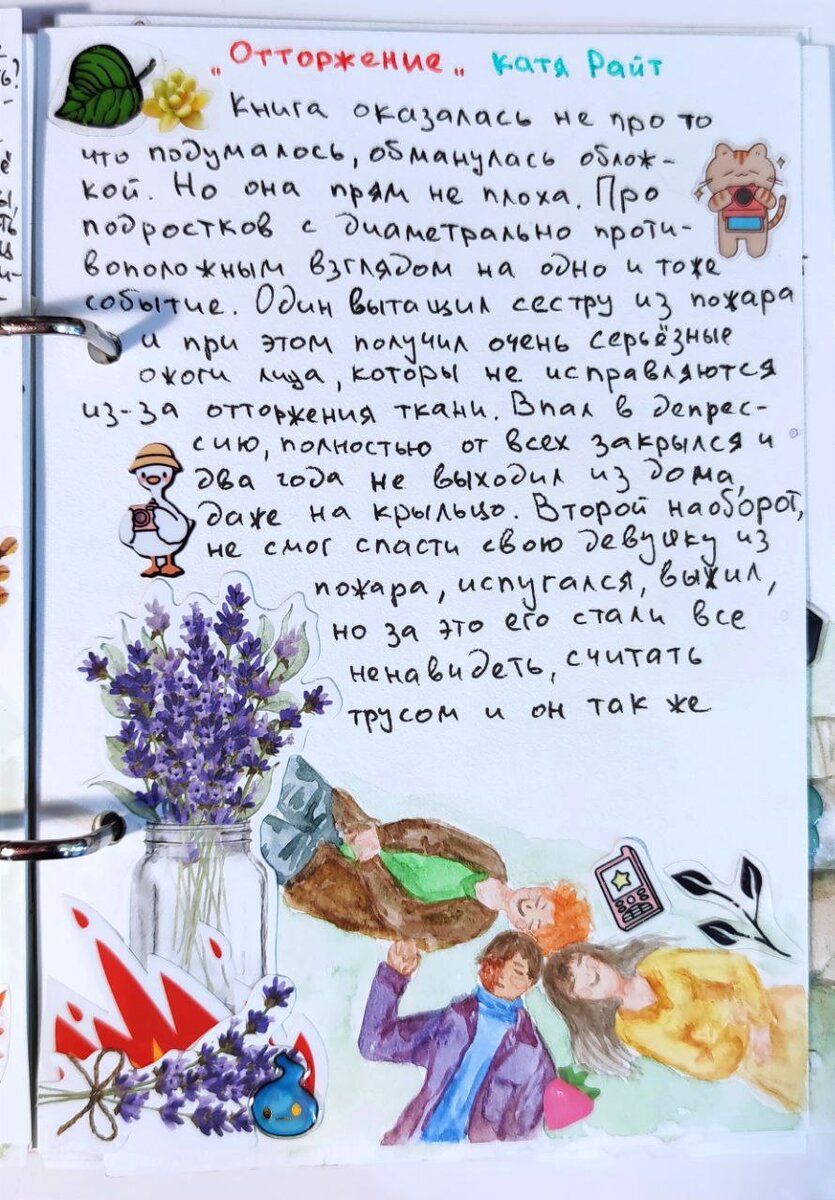 „Отторжение„ Катя Райт
Книга оказалась не про то
что подумалось, обманулась облож-
кой. Но она прям не плоха. Про
подростков с диаметрально проти-
воположным взглядом на одно и тоже
событие. Один вытащил сестру из пожара
и при этом получил очень серьёзные
ожоги лица, которы не исправляются
из-за отторжения ткани. Впал в депрес-
сию, полностью от всех закрылся и
два года не выходил из дома,
даже на крыльцо. Второй наоборот,
не смог спасти свою девушку из
пожара, испугался, выжил,
но за это его стали все
ненавидеть, считать
трусом и он так же